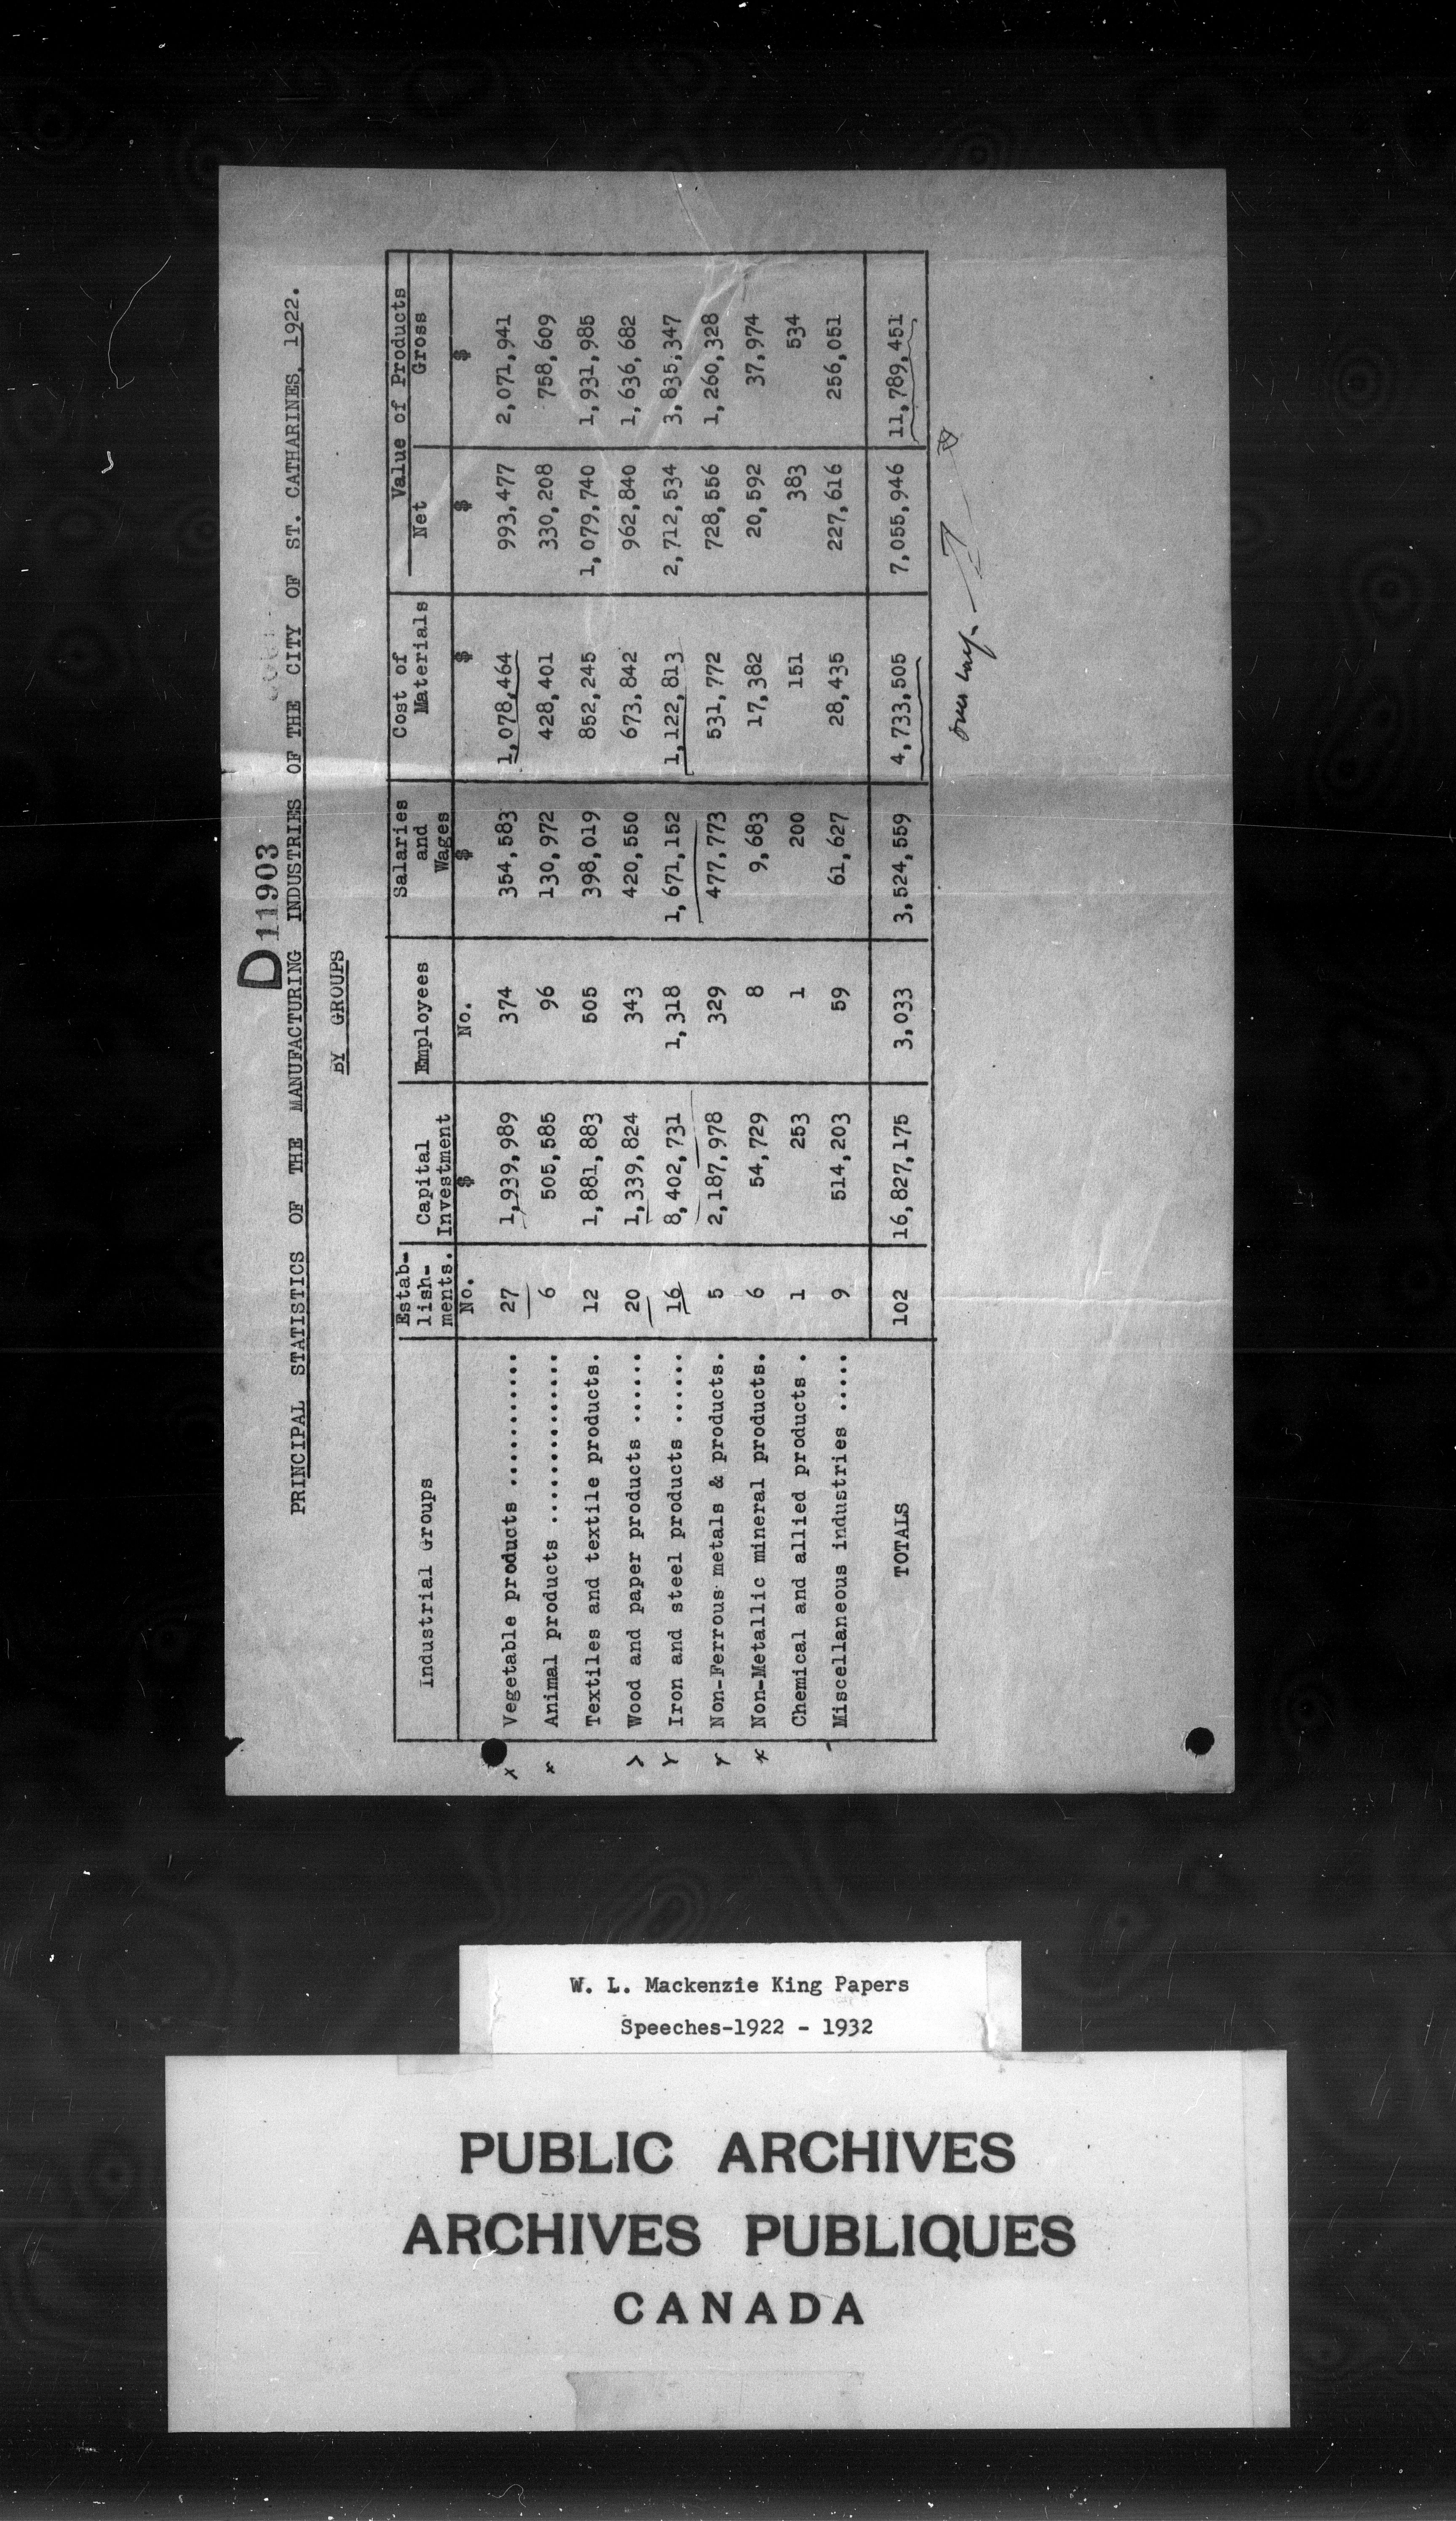 D 11903
PRINCIPAL STATISTICS OF THE MANUFACTURING INDUSTRIES OF THE CITY OF ST. CATHARINES, 1922.
BY GROUPS
Industrial Groups | Estab-lish-ments. | Capital Investment | Employees | Salaries and Wages | Cost of Materials | Value of Products Net | Gross
No. $ No. $ $ $ $
x Vegetable products ............ 27 1,939,989 374 354,583 1,078,464 993,477 2,071,941
x Animal products .............. 6 505,585 96 130,972 428,401 330,208 758,609
Textiles and textile products. 12 1,881,883 505 398,019 852,245 1,079,740 1,931,985
Wood and paper products ...... 20 1,339,824 343 420,550 673,842 962,840 1,636,682
Iron and steel products ...... 16 8,402,731 1,318 1,671,152 1,122,813 2,712,534 3,835,347
Non-Ferrous metals & products. 5 2,187,978 329 477,773 531,772 728,556 1,260,328
x Non-Metallic mineral products. 6 54,729 8 9,683 17,382 20,592 37,974
Chemical and allied products . 1 253 1 200 151 383 534
Miscellaneous industries ..... 9 514,203 59 61,627 28,435 227,616 256,051
TOTALS 102 16,827,175 3,033 3,524,559 4,733,505 7,055,946 11,789,451
W. L. Mackenzie King Papers
Speeches-1922 - 1932
PUBLIC ARCHIVES
ARCHIVES PUBLIQUES
CANADA